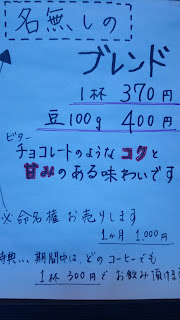 名無しの
ブレンド
1杯 370円
豆100g 400円
ビター
チョコレートのような コクと
甘みのある味わいです
※命名権お売りします
1か月 1,000円
特典... 期間中は、どのコーヒーでも
1杯 300円で お飲み頂けます